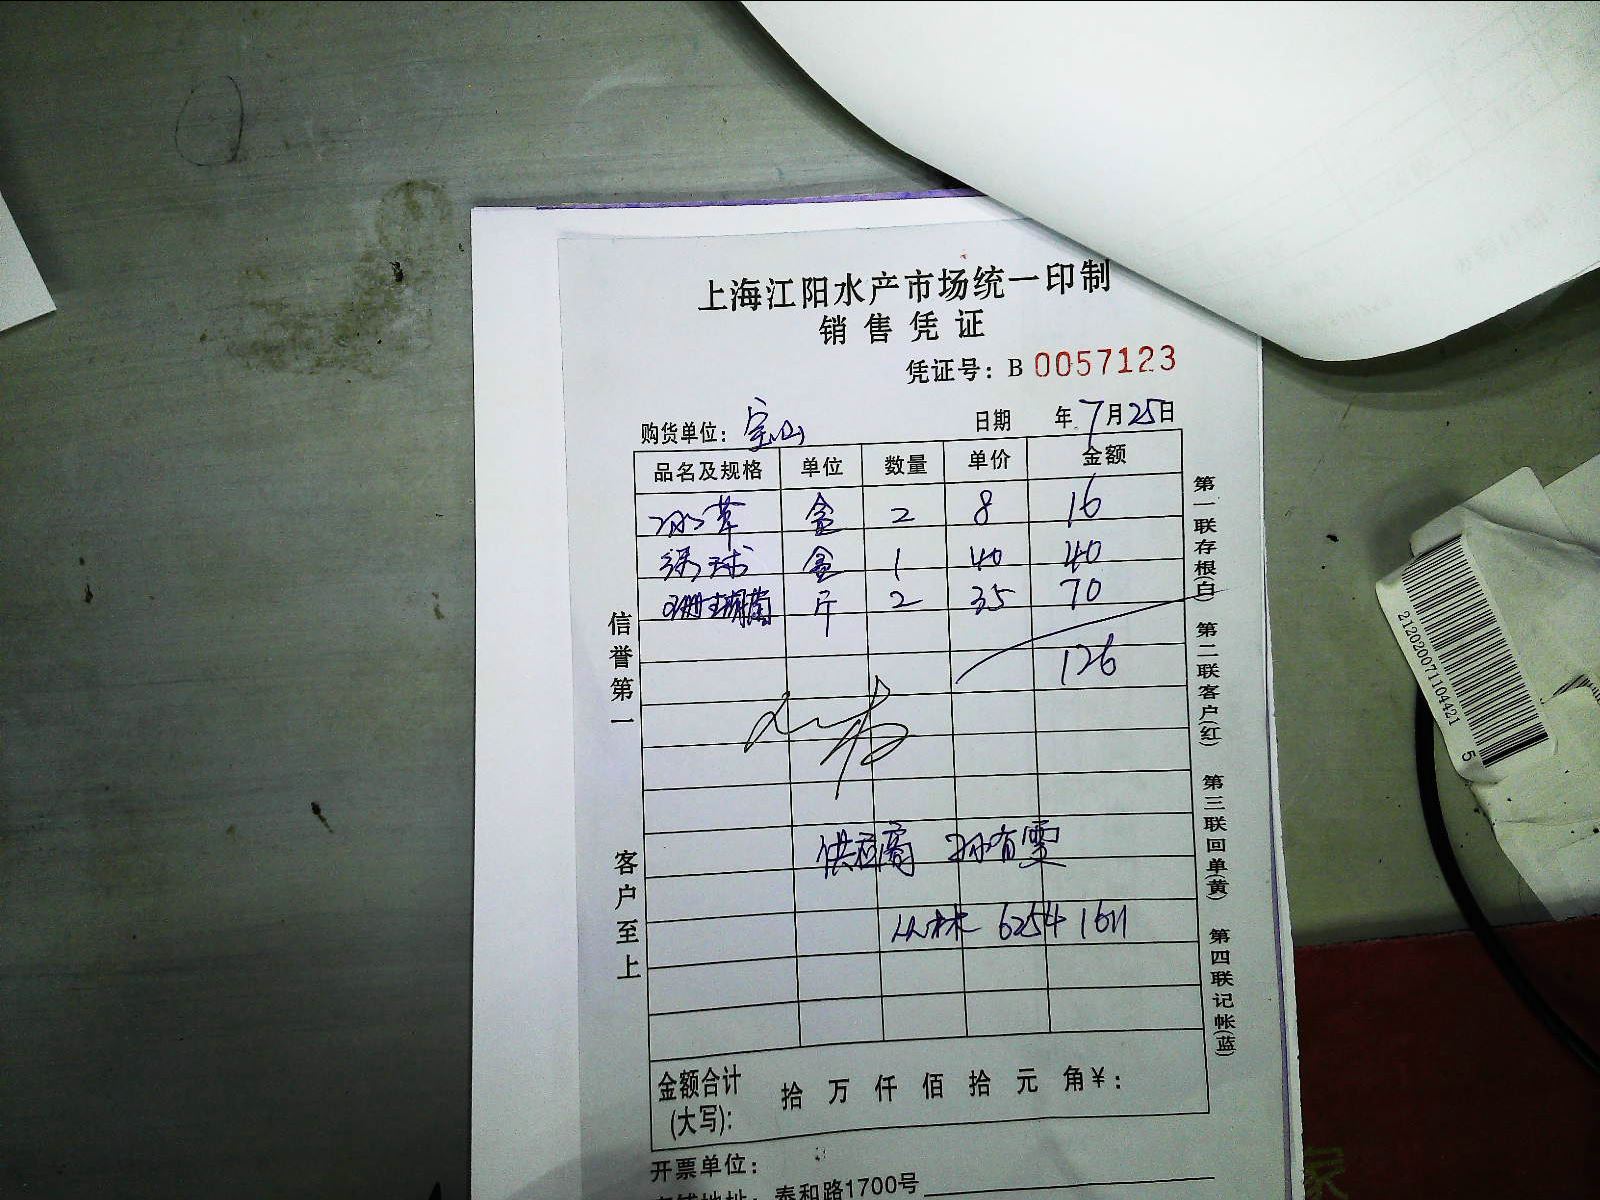 上海江阳水产市场统一印制
销售凭证
凭证号：B 0057123
购货单位：宝山 日期 年7月25日
品名及规格 单位 数量 单价 金额
冰草 盒 2 8 16
绿球 盒 1 40 40
珊瑚菌 斤 2 35 70
126
供应商 孙有雯
丛林 6254 1611
金额合计(大写)：拾万仟佰拾元角￥：
开票单位：
泰和路1700号
信誉第一
客户至上
第一联存根(白) 第二联客户(红) 第三联回单(黄) 第四联记帐(蓝)
2120200711044215